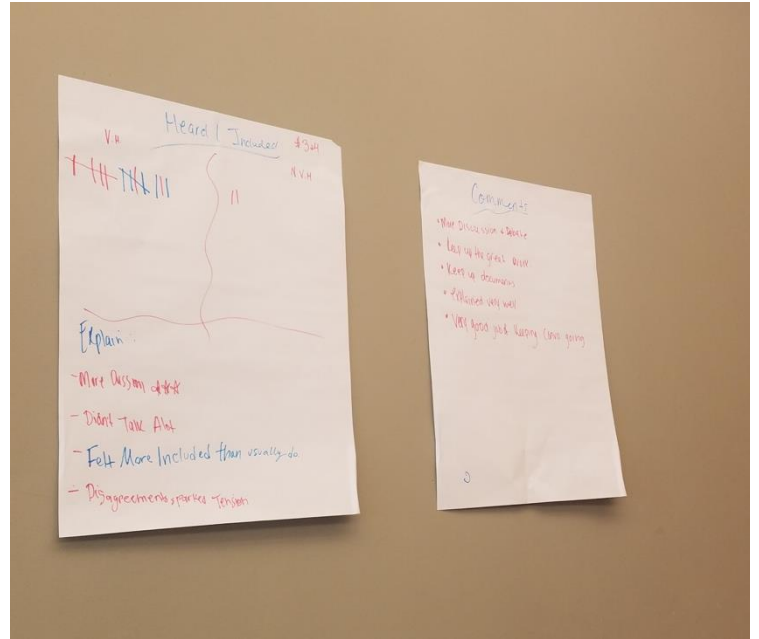 Heard / Included
V.H
N V.H
Explain:
- More
- Didn't Talk Alot
- Felt More Included than usually do
- Disagreements sparked Tension
Comments
• More Discussion + Debate
• Keep up the great work
• Keep up
• explained very well
• Very good job keeping convo going